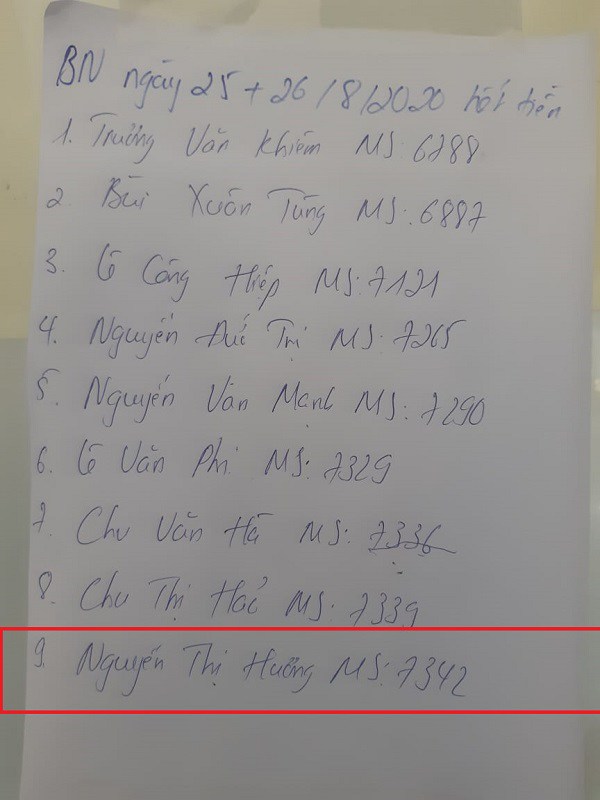 BN ngày 25 + 26/8/2020 hốt tiền
1. Trương Văn Khiêm MS: 6288
2. Bùi Xuân Tùng MS: 6887
3. Lê Công Hiếp MS: 7121
4. Nguyễn Đức Trị MS: 7265
5. Nguyễn Văn Mạnh MS: 7290
6. Lê Văn Phi MS: 7329
7. Chu Văn Hà MS: 7336
8. Chu Thị MS: 7339
9. Nguyễn Thị Hường MS: 7342